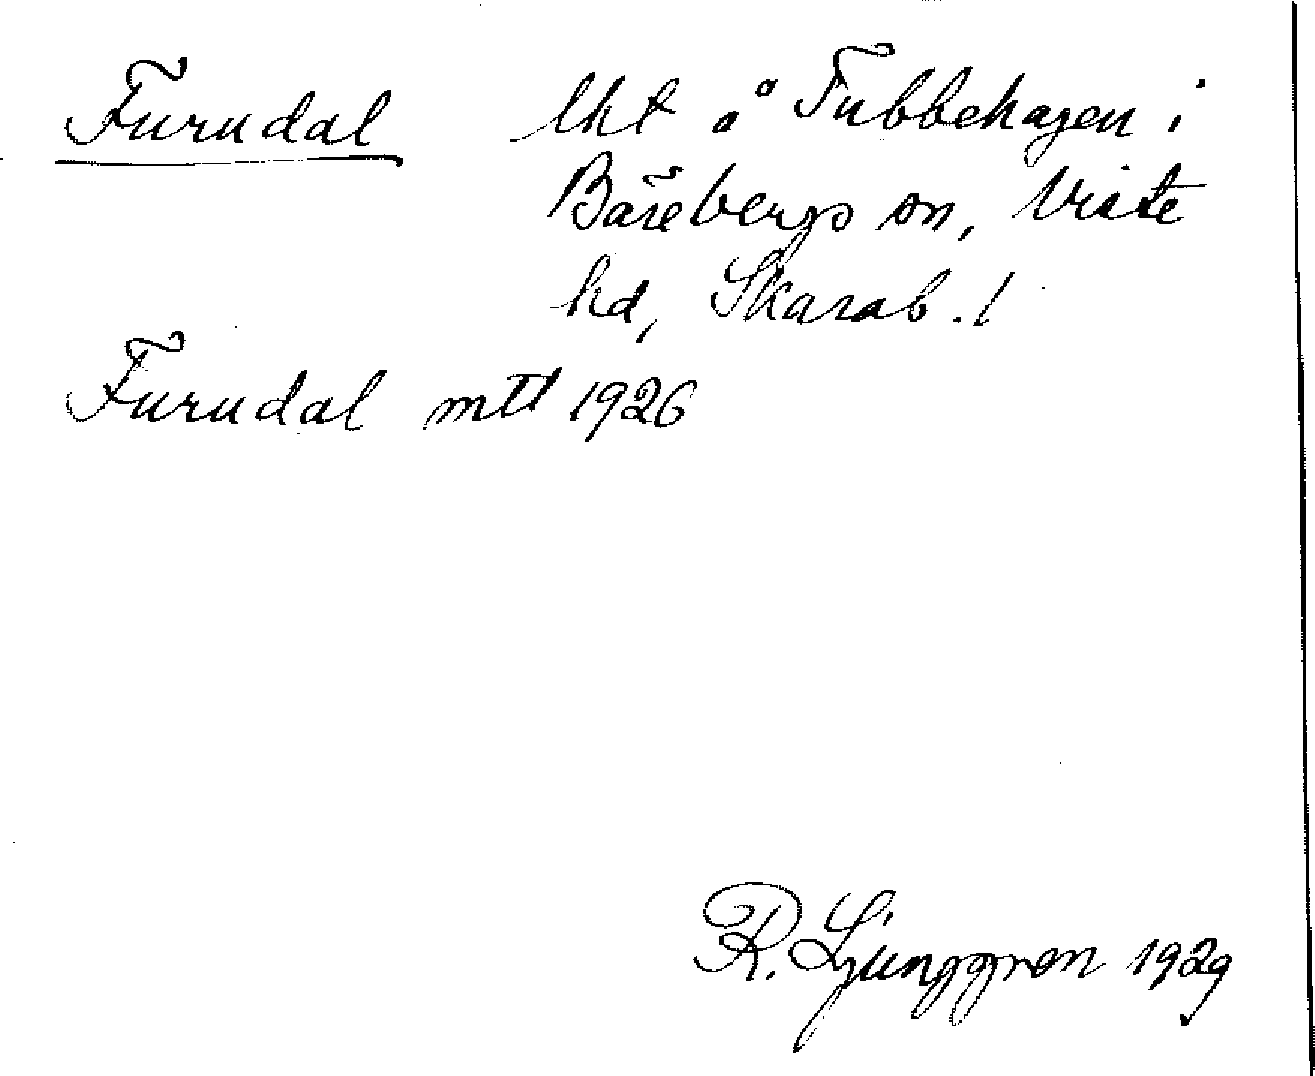 Furudal lht å Tubbehagen i
Bärebergs sn, Viste
hd, Skarab. l
Furudal mtl 1926
R. Ljunggren 1929